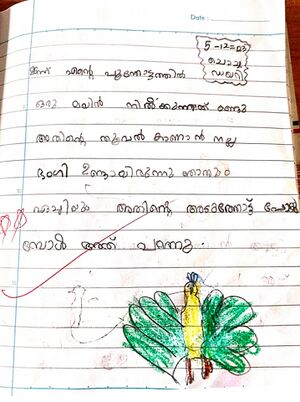 Date :
5-12-23
ചൊവ്വ
ഡയറി
ഇന്ന് എന്റെ പൂന്തോട്ടത്തിൽ
ഒരു മയിൽ നിൽക്കുന്നത് കണ്ടു
അതിന്റെ തൂവൽ കാണാൻ നല്ല
ഭംഗി ഉണ്ടായിരുന്നു ഞാനും
അതിന്റെ അടുത്തോട്ട്
അത് പറന്നു.